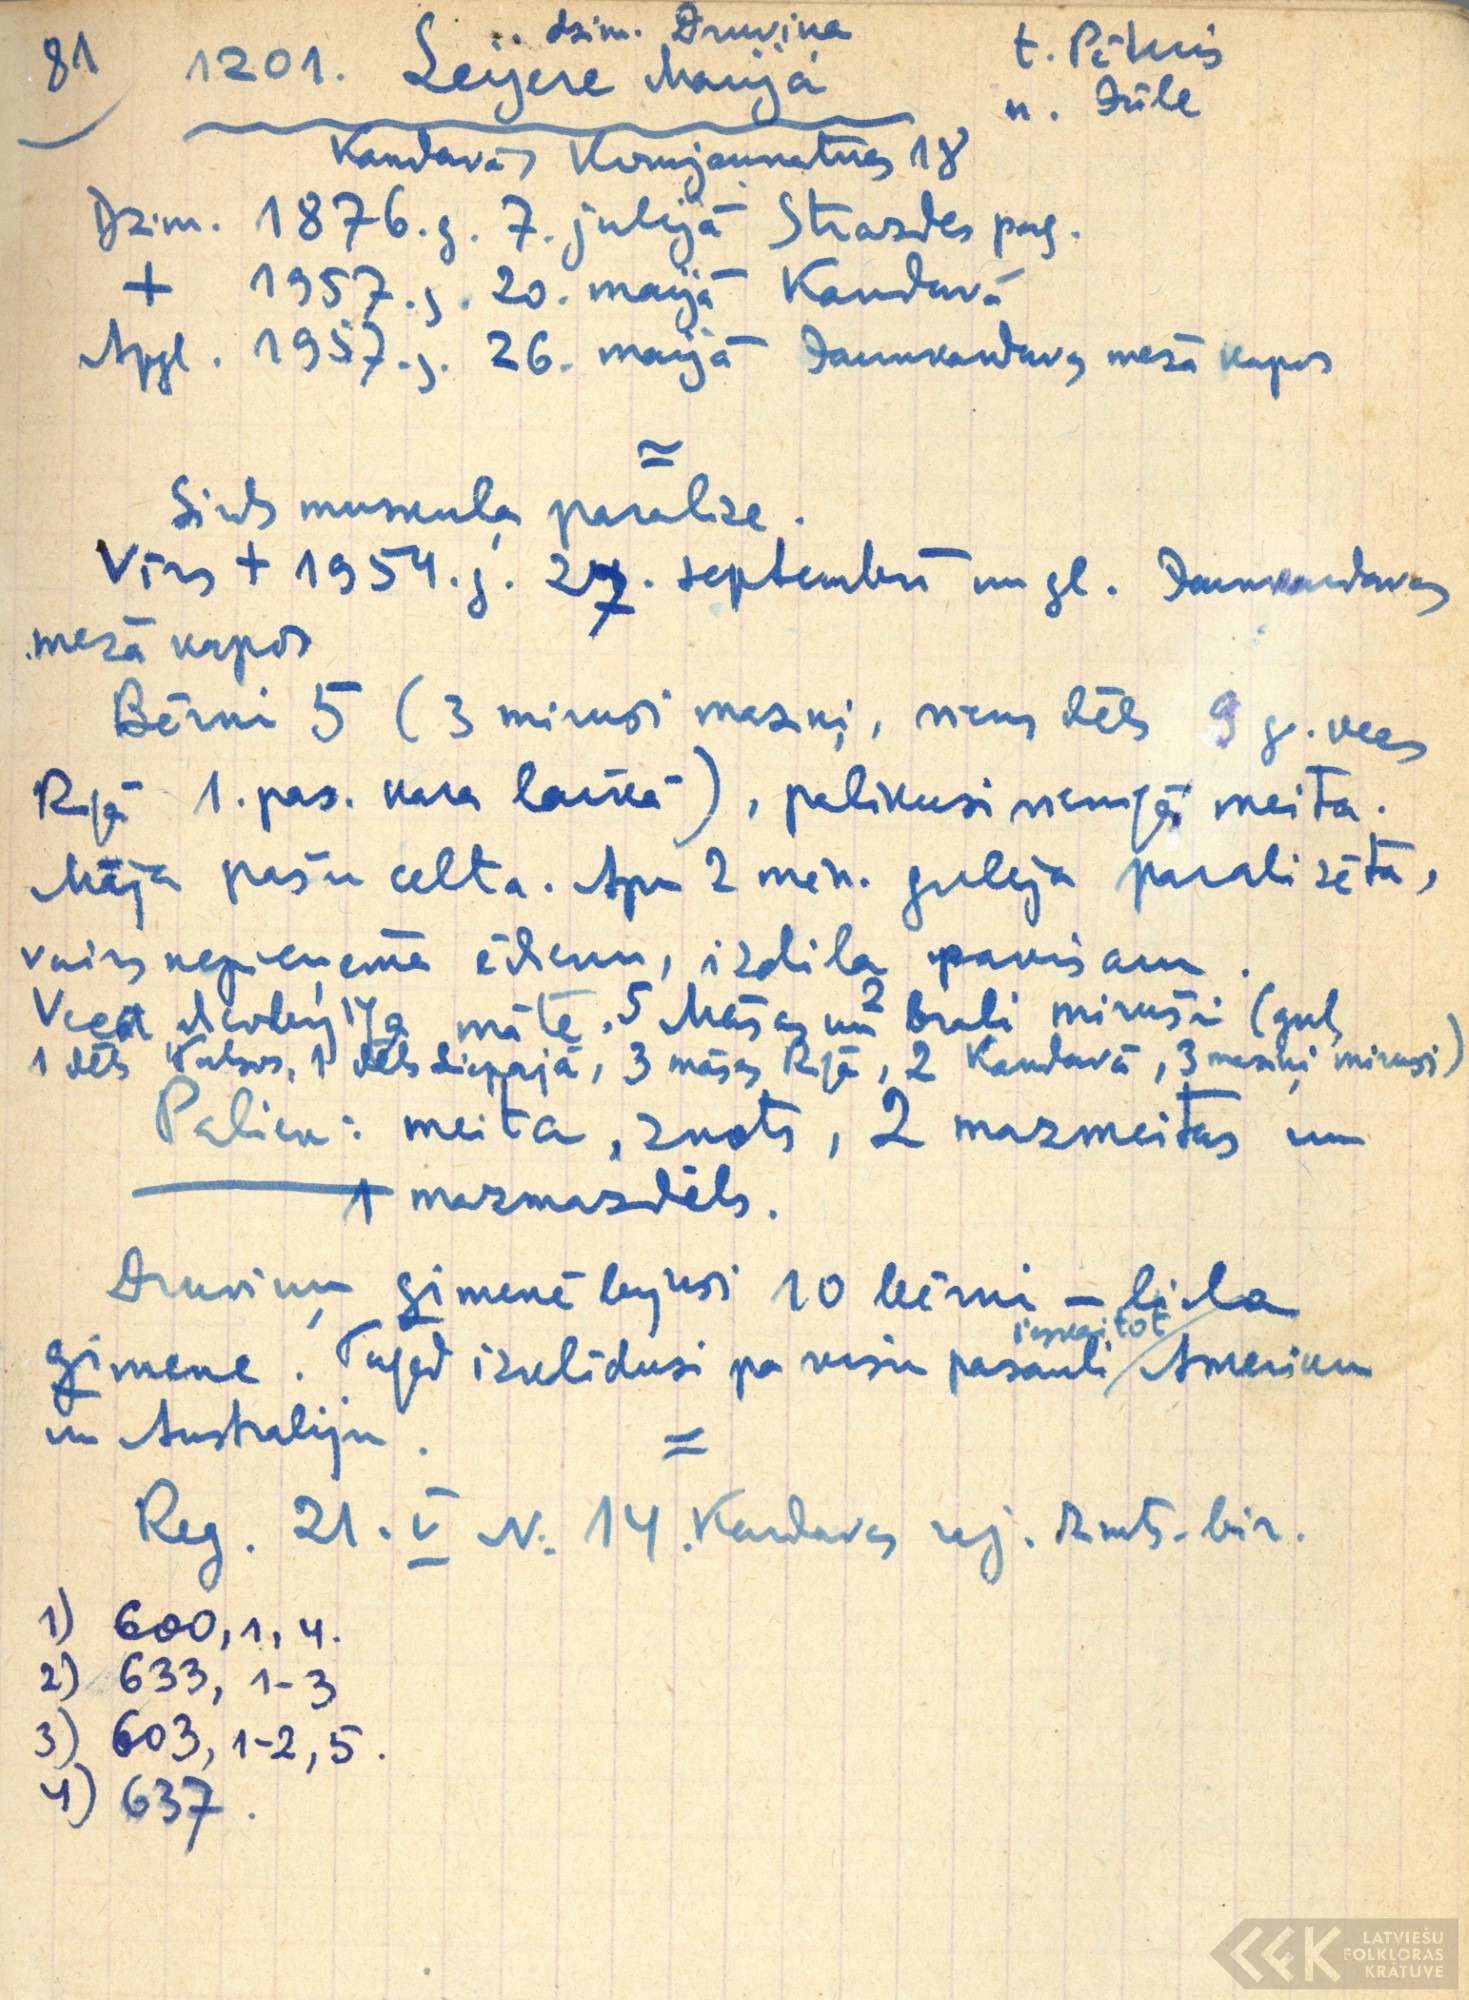 81
dzim. Druviņa
t. Pēteris
1201. Leijere Marija
m. Jūle
Kandavas Komjaunatnes 18
Dzim. 1876.g. 7. jūlijā Strazdes pag.
+ 1957.g. 20. maijā Kandavā
Apgl. 1957.g. 26. maijā Jaunkandavas mežā kapos
=
Sirds muskuļa paralīze.
Vīrs + 1954.g. 27. septembrī un gl. Jaunkandavas
mežā kapos
Bērni 5 (3 miruši maziņi, viens dēls 9 g. vecs
Rīgā 1. pas. kara laikā), palikusi vienīgā meita.
Māja pašu celta. Apm 2 mēn. gulēja paralizēta,
vairs nepieņēmā ēdienu, izdila pavisam.
Vecā māte. 5 Māsas un 2 brāļi miruši (gul
1 dēls Talsos, 1 dēls Liepājā, 3 māsas Rīgā, 2 Kandavā, 3 maziņi miruši)
Paliek: meita, znots, 2 mazmeitas un
1 mazmazdēls.
Druviņu ģimenē bijuši 10 bērni – liela
ieskaitot
ģimene. Tagad izklīduši pa visu pasauli / Ameriku
un Austrāliju.
=
Reg. 21. V N. 14. Kandavas rej. dzimts. bir.
1) 600, 1, 4.
2) 633, 1-3
3) 603, 1-2, 5.
4) 637.
LATVIEŠU
FOLKLORAS
KRĀTUVE